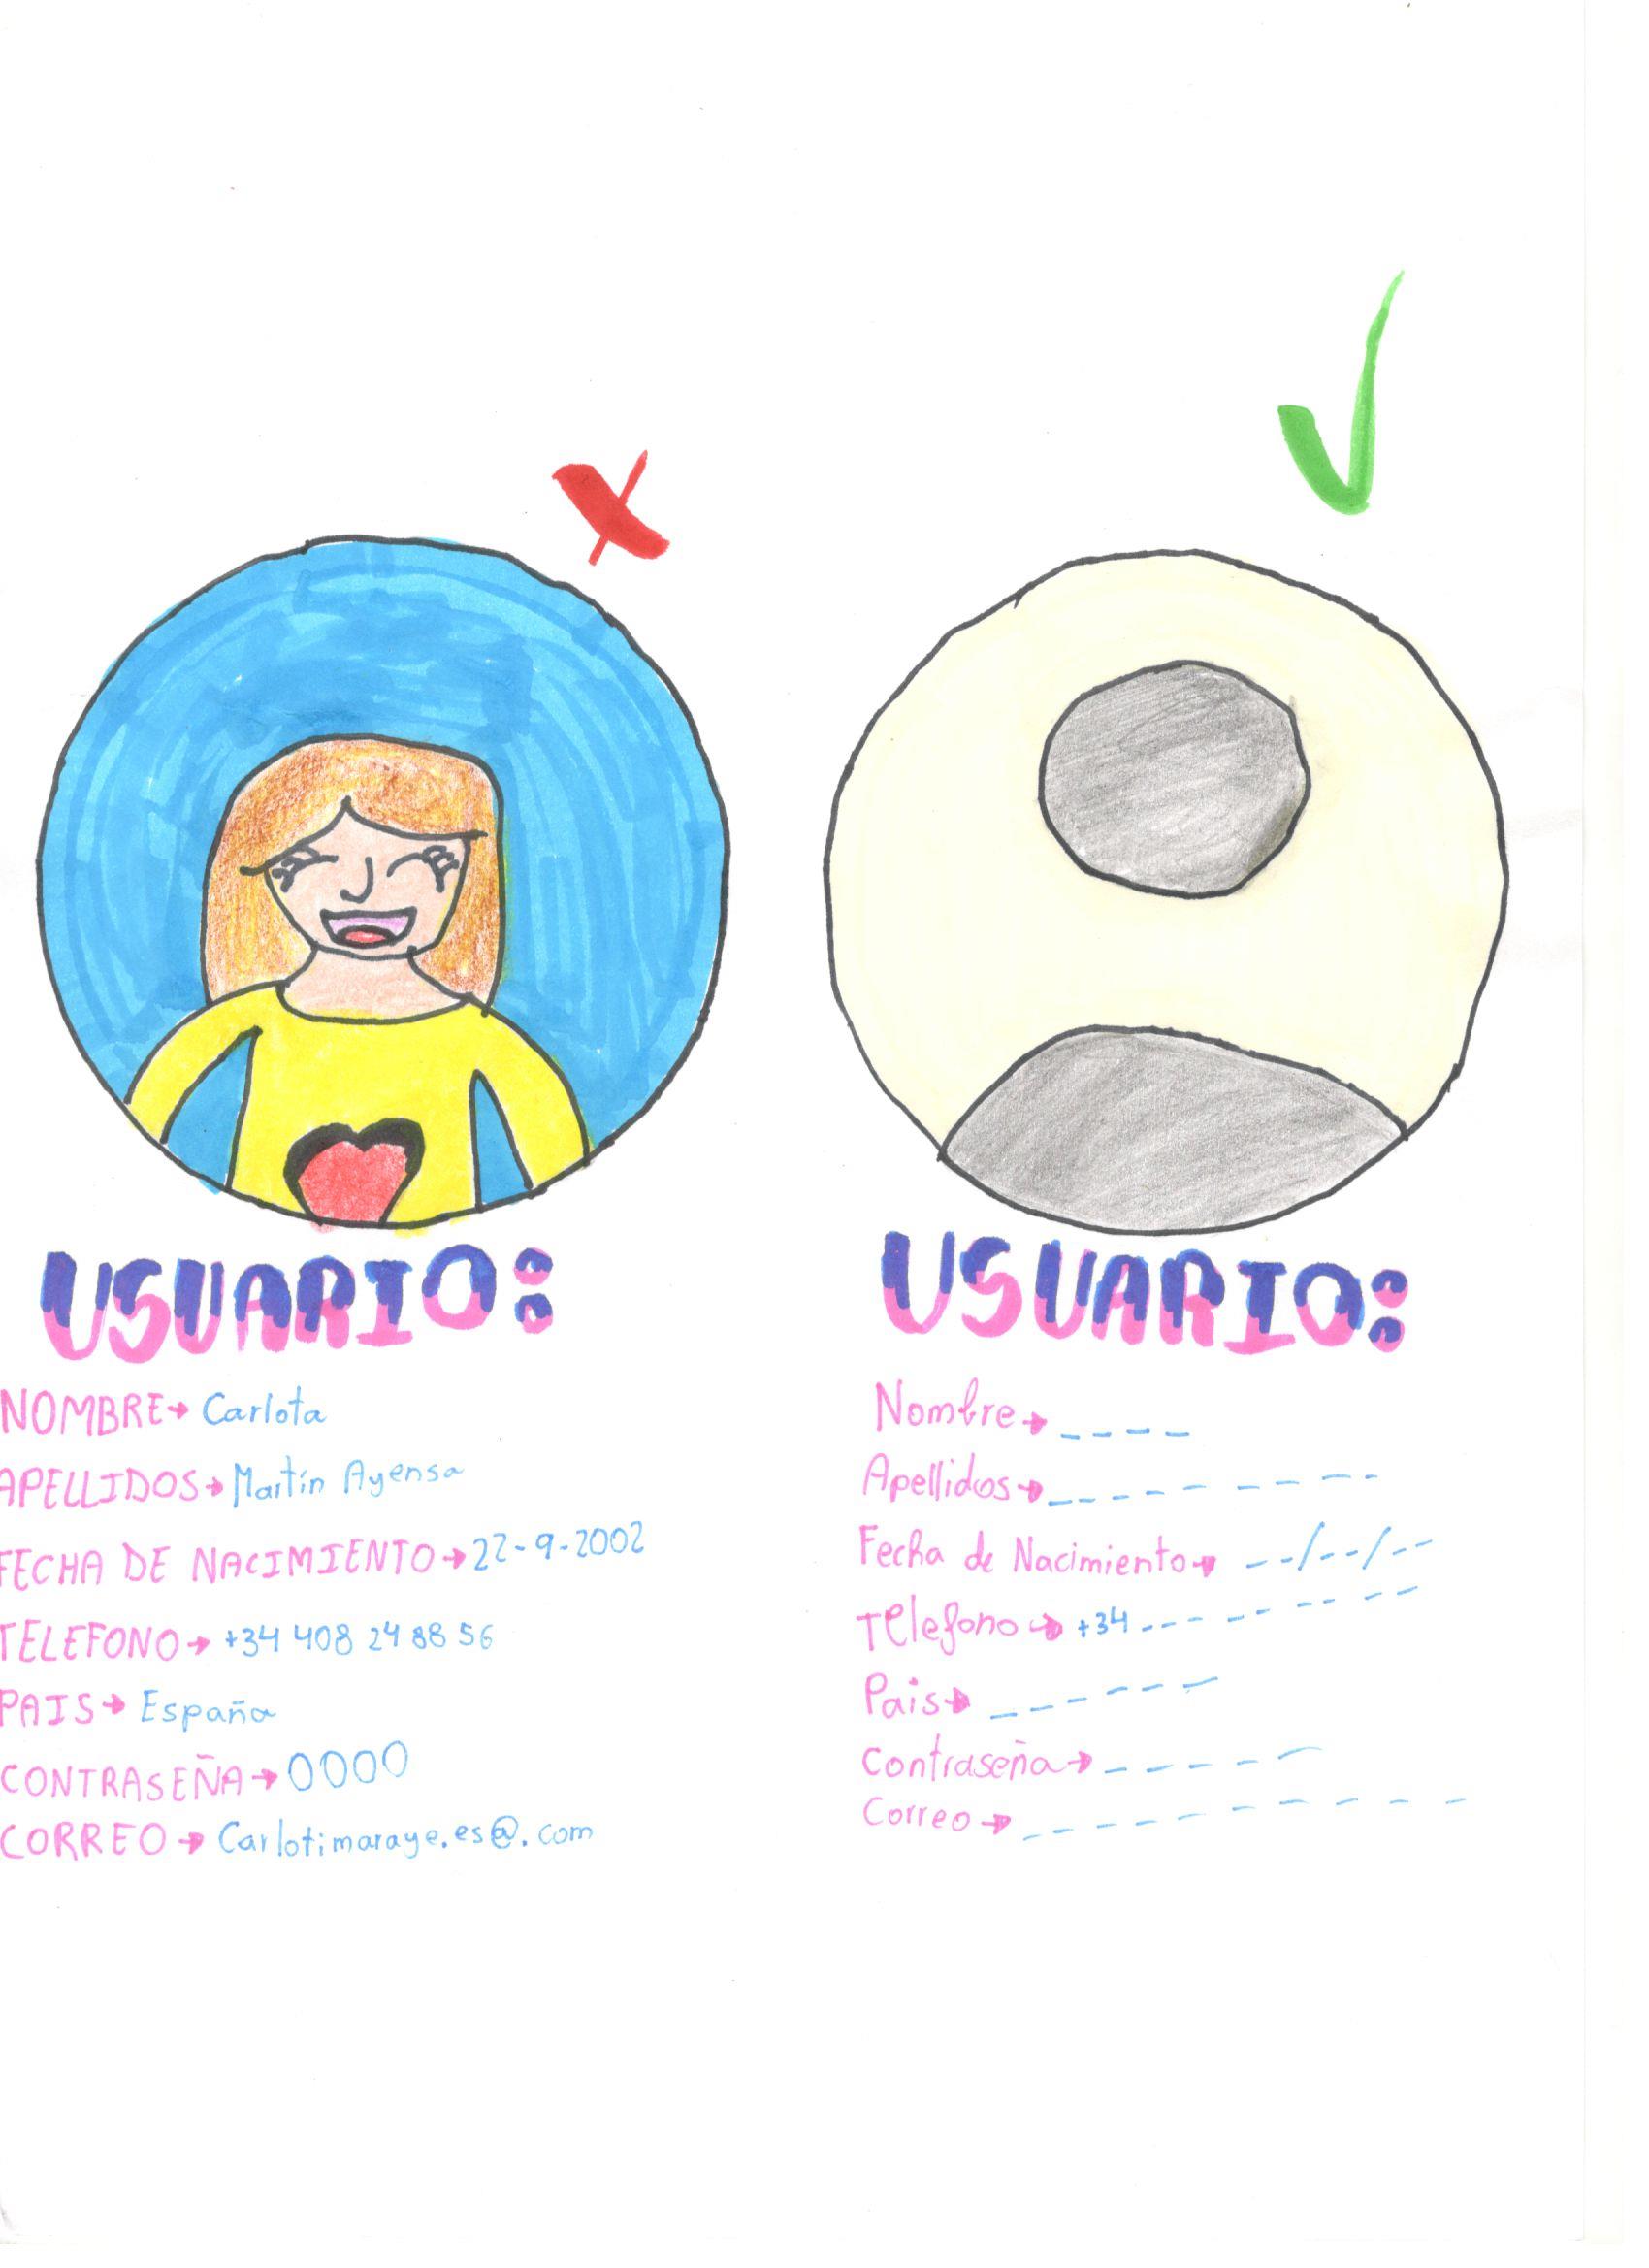 USUARIO:
NOMBRE→ Carlota
APELLIDOS→ Martín Ayensa
FECHA DE NACIMIENTO→22-9-2002
TELEFONO→ +34 408 24 88 56
PAIS→ España
CONTRASEÑA→0000
CORREO→ Carlotimaraye.es@.com
USUARIO:
Nombre→ _ _ _ _
Apellidos→ _ _ _ _ _ _ _ _ _
Fecha de Nacimiento→ _ _/_ _/_ _
Telefono→ +34 _ _ _ _ _ _ _ _ _
Pais→ _ _ _ _ _ _
Contraseña→ _ _ _ _ _
Correo→ _ _ _ _ _ _ _ _ _ _